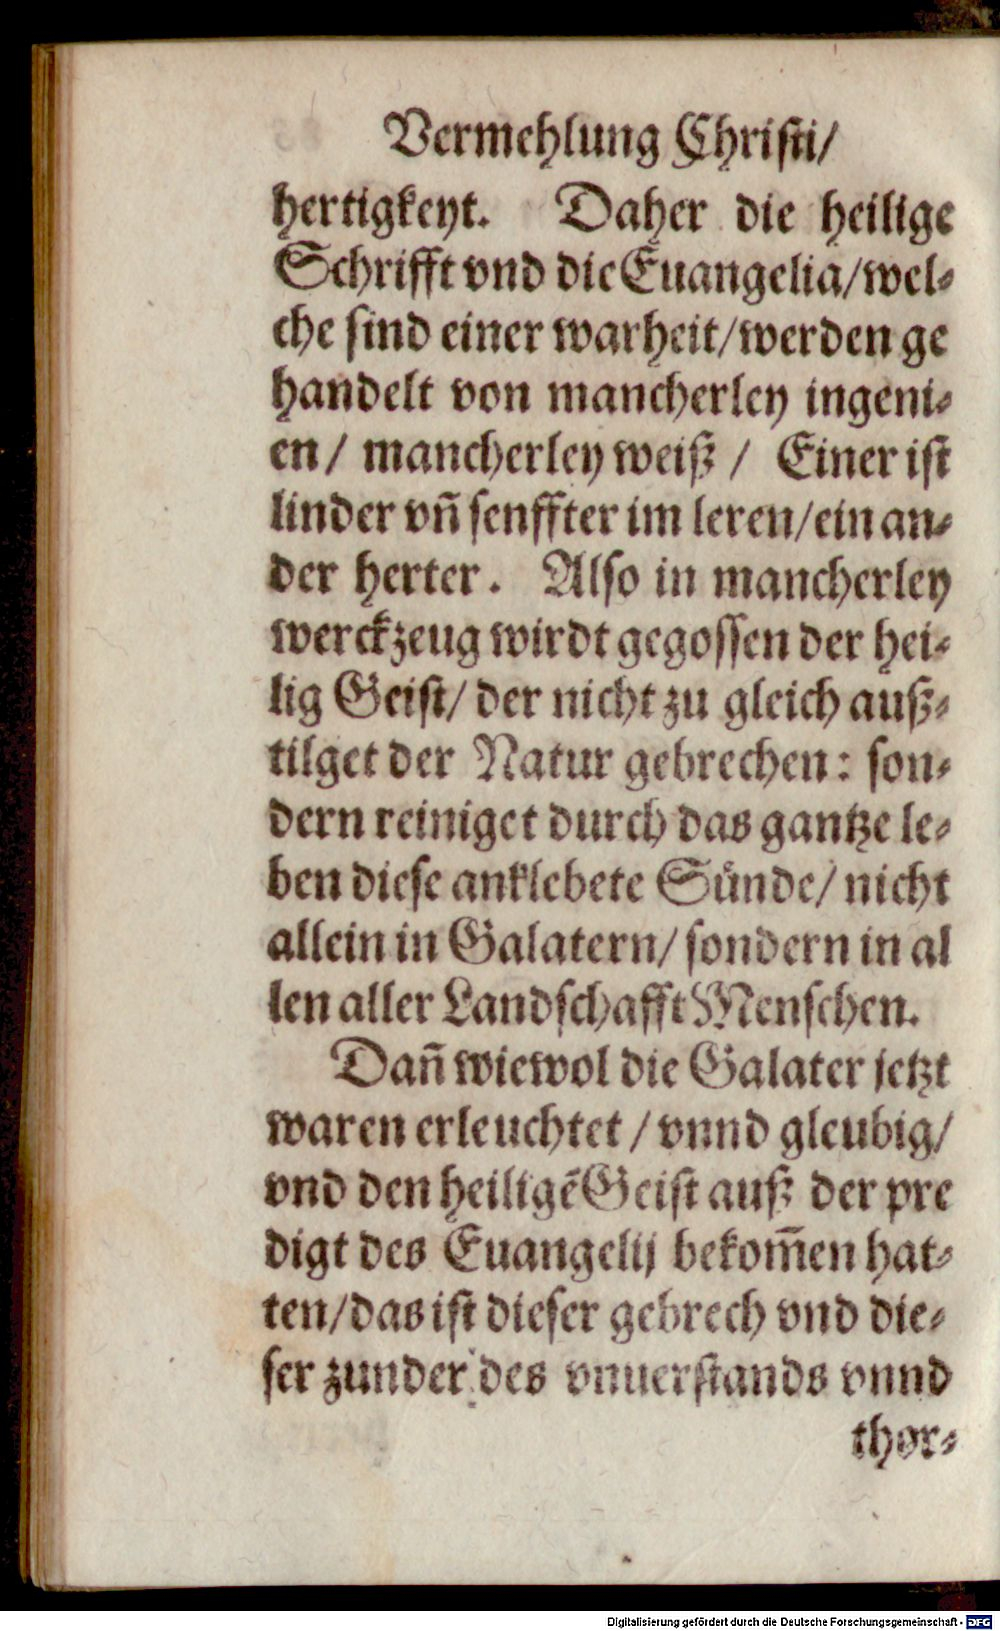 Vermehlung Christi/
hertigkeyt. Daher die heilige
Schrifft vnd die Euangelia/wel-
che sind einer warheit/werden ge
handelt von mancherley ingeni-
en/ mancherley weiß / Einer ist
linder vñ senffter im leren/ein an-
der herter. Also in mancherley
werckzeug wirdt gegossen der hei-
lig Geist/ der nicht zu gleich auß-
tilget der Natur gebrechen: son-
dern reiniget durch das gantze le-
ben diese anklebete Sünde/ nicht
allein in Galatern/ sondern in al
len aller Landschafft Menschen.
Dañ wiewol die Galater jetzt
waren erleuchtet / vnnd gleubig/
vnd den heiligẽ Geist auß der pre
digt des Euangelij bekom̃en hat-
ten/das ist dieser gebrech vnd die-
ser zunder des vnuerstands vnnd
thor-
Digitalisierung gefördert durch die Deutsche Forschungsgemeinschaft - DFG